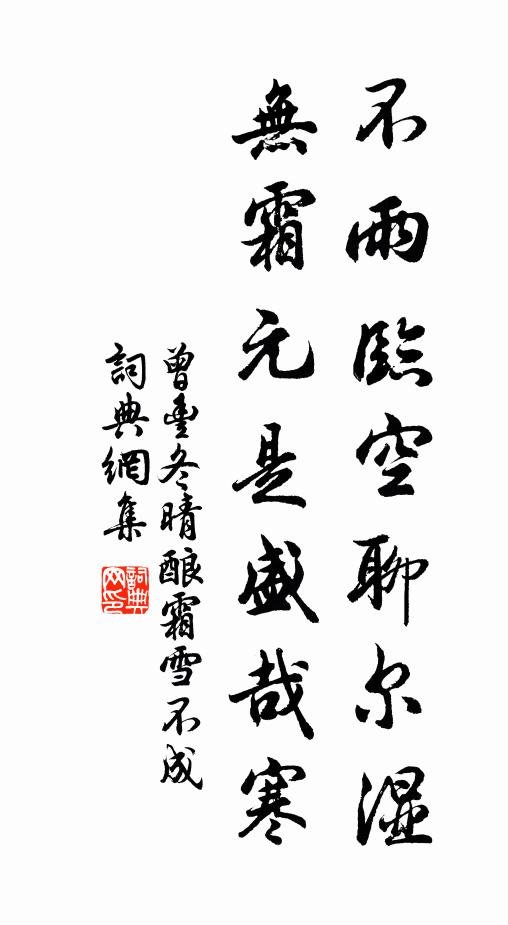 不雨臨空聊尔湿
無霜元是盛哉寒
曾豊冬晴酿霜雪不成
詞典網集
詞典网印